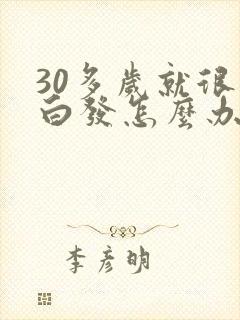 30多歲就很
白發怎麼办
李彥明